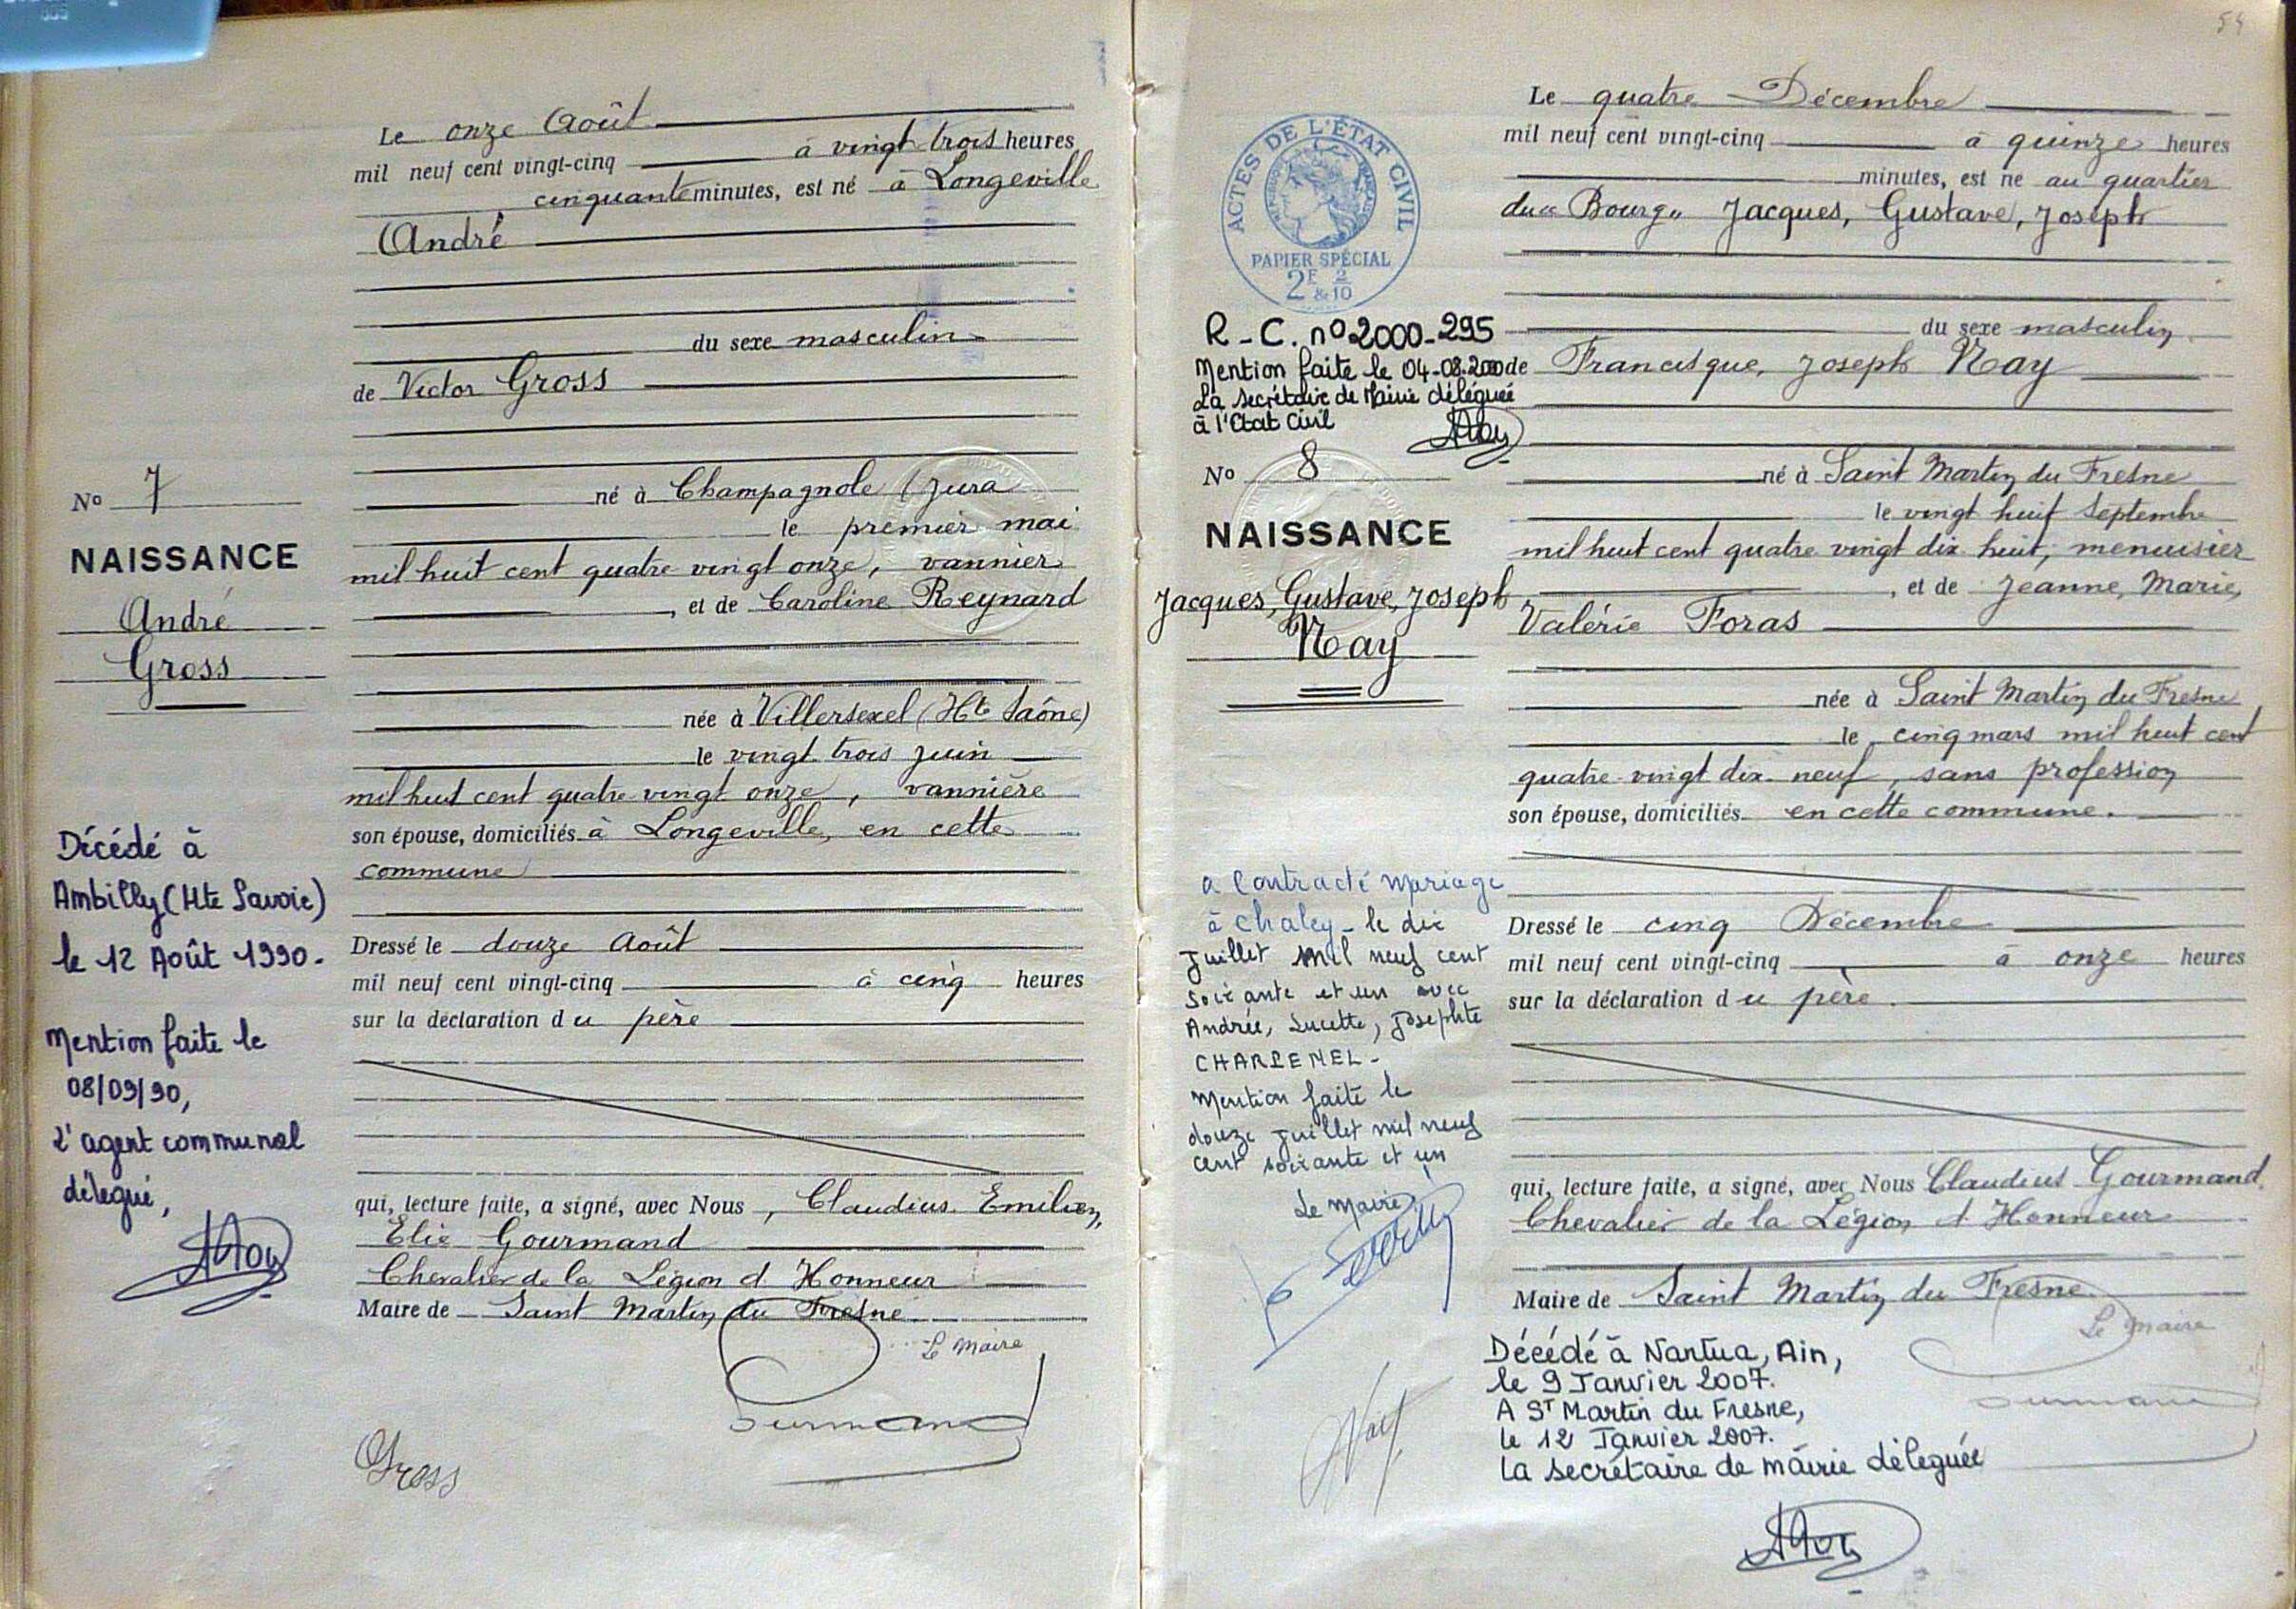 Le onze Août
mil neuf cent vingt-cinq à vingt trois heures
cinquante minutes, est né à Longeville
André
du sexe masculin
de Victor Gross
né à Champagnole (Jura
le premier mai
mil huit cent quatre vingt onze, vannier
, et de Caroline Reynard
née à Villersexel (Hte Saône)
le vingt trois juin
mil huit cent quatre vingt onze, vannière
son épouse, domiciliés à Longeville, en cette
commune
Dressé le douze Août
mil neuf cent vingt-cinq à cinq heures
sur la déclaration du père
qui, lecture faite, a signé, avec Nous, Claudius Emilien,
Elie Gourmand
Chevalier de la Légion d Honneur
Maire de Saint Martin du Fresne
Le Maire
Gross
No 7
NAISSANCE
André
Gross
Décédé à
Ambilly (Hte Savoie)
le 12 Août 1990.
Mention faite le
08/09/90,
L'agent communal
délegué,
54
Le quatre Décembre
mil neuf cent vingt-cinq à quinze heures
minutes, est né au quartier
du "Bourg" Jacques, Gustave, Joseph
du sexe masculin
de Francisque, Joseph Nay
né à Saint Martin du Fresne
le vingt huit Septembre
mil huit cent quatre vingt dix huit, menuisier
, et de Jeanne, Marie,
Valérie Foras
née à Saint Martin du Fresne
le cinq mars mil huit cent
quatre vingt dix neuf, sans profession
son épouse, domiciliés en cette commune.
Dressé le cinq Décembre
mil neuf cent vingt-cinq à onze heures
sur la déclaration du père.
qui, lecture faite, a signé, avec Nous Claudius Gourmand,
Chevalier de la Légion d Honneur
Maire de Saint Martin du Fresne
Le Maire
Décédé à Nantua, Ain,
le 9 Janvier 2007.
A ST Martin du Fresne,
le 12 Janvier 2007.
la secrétaire de mairie déleguée
ACTES DE L'ÉTAT CIVIL
PAPIER SPÉCIAL
2E 2 & 10
R-C. no 2000-295
Mention faite le 04-08.2000
La secrétaire de Mairie déléguée
à l'Etat Civil
No 8
NAISSANCE
Jacques, Gustave, Joseph
Nay
a contracté mariage
à Chaley - le dix
juillet mil neuf cent
soixante et un avec
Andrée, Lucette, Josephte
Mention faite le
douze juillet mil neuf
cent soixante et un
Le Maire
Nay